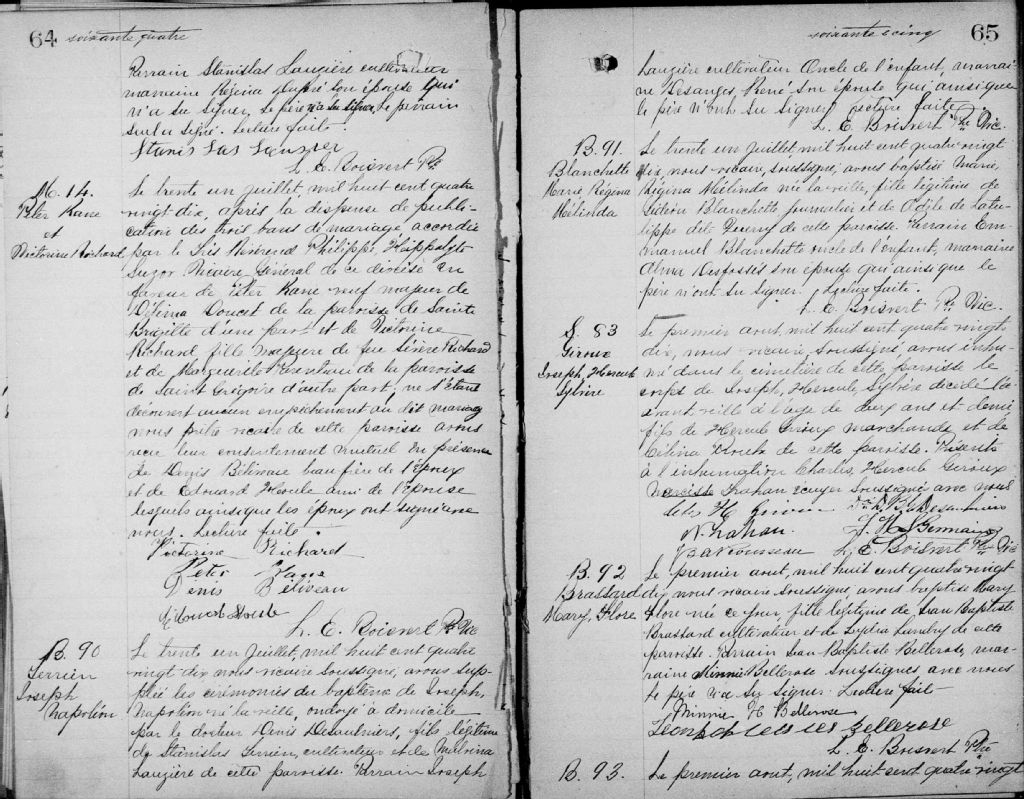 64 soixante quatre
Parrain Stanislas Lauzière cultivateur
marraine Régina son épouse qui
n'a su signer, le père n'a su signer, le parrain
seul a signé. Lecture faite.
Stanislas Lauzier
L. E. Boisvert Ptr
M. 14.
Peter Kane
et
Victorine Richard
Le trente un juillet, mil huit cent quatre
vingt-dix, après la dispense de publi-
cation des trois bans de mariage, accordée
par le Très Révérend Philippe, Hippolyte
Suzor Vicaire Général de ce diocèse en
faveur de Peter Kane veuf majeur de
Délima Doucet de la paroisse de Sainte
Brigitte d'une part et de Victorine
Richard fille majeure de feu Sévère Richard
et de Marguerite Parenteau de la paroisse
de Saint Grégoire d'autre part; ne s'étant
découvert aucun empêchement au dit mariage
nous prêtre vicaire de cette paroisse avons
reçu leur consentement mutuel en présence
de Denis Béliveau beau frère de l'époux
et de Edouard Houle ami de l'épouse
lesquels ainsi que les époux ont signé avec
nous. Lecture faite.
Victorine Richard
Peter Kane
Denis Béliveau
Edouard Houle
L. E. Boisvert Ptr Vic
B. 90
Serrien
Joseph
Napoléon
Le trente un juillet, mil huit cent quatre
vingt-dix nous vicaire soussigné, avons sup-
pléé les cérémonies du baptême de Joseph,
Napoléon né la veille, ondoyé à domicile
par le docteur Denis Desaulniers, fils légitime
de Stanislas cultivateur et de Malvina
Lauzière de cette paroisse. Parrain Joseph
soixante & cinq 65
Lauzière cultivateur oncle de l'enfant, marrai-
ne Lesanges René son épouse qui ainsi que
le père n'ont su signer. Lecture faite.
L. E. Boisvert Ptr Vic.
B. 91.
Blanchette
Marie, Régina
Mélinda
Le trente un juillet, mil huit cent quatre vingt
dix, nous vicaire, soussigné, avons baptisé Marie,
Régina Mélinda née la veille, fille légitime de
Gédéon Blanchette, journalier et de Odile de Latu-
lippe dit Quemy de cette paroisse. Parrain Em-
manuel Blanchette oncle de l'enfant, marraine
Desfossés son épouse qui ainsi que le
père n'ont su signer. Lecture faite.
L. E. Boisvert Ptr Vic.
S. 83
Giroux
Joseph, Hercule
Sylvère
Le premier aout, mil huit cent quatre vingt
dix, nous vicaire, soussigné avons inhu-
mé dans le cimetière de cette paroisse le
corps de Joseph, Hercule, Sylvère décédé l'a-
vant veille à l'âge de deux ans et demi
fils de Hercule Giroux marchand et de
Célina de cette paroisse. Présents
à l'inhumation Charles, Hercule Giroux
Narcisse Trahan écuyer soussignés avec nous
Chs H Giroux Desaulniers
N. Trahan J. H. St Germain
Rousseau L. E. Boisvert Ptr Vic
B. 92
Brassard
Mary, Flore
Le premier aout, mil huit cent quatre vingt
dix nous vicaire soussigné, avons baptisé Mary
Flore née ce jour, fille légitime de Jean Baptiste
Brassard cultivateur et de Lydia Landry de cette
paroisse. Parrain Jean Baptiste Bellerose, mar-
raine Minnie Bellerose soussignés avec nous
Le père n'a su signer. Lecture faite
Minnie H Bellerose
Bellerose
L. E. Boisvert Ptr
B. 93.
Le premier aout, mil huit cent quatre vingt